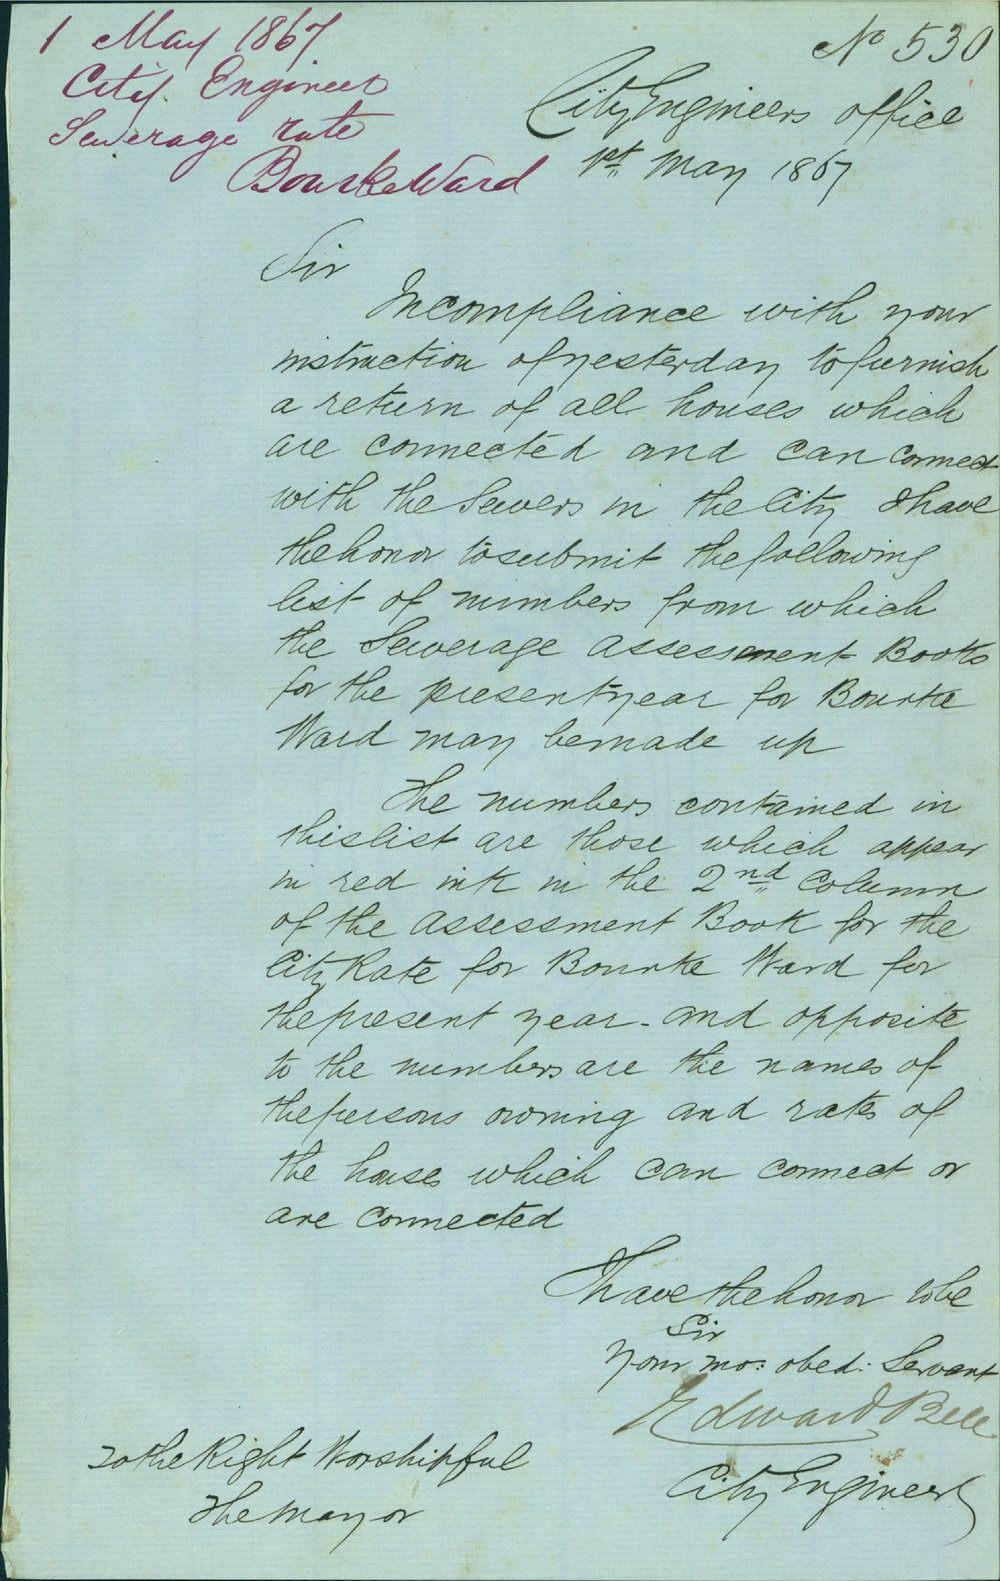 1 May 1867
City Engineer
Sewerage rate
Bourke Ward
No 530
City Engineers office
1st May 1867
Sir
In compliance with your
instruction of yesterday to furnish
a return of all houses which
are connected and can connect
with the Sewers in the City I have
the honor to submit the following
list of numbers from which
the Sewerage Assessment Books
for the present year for Bourke
Ward may be made up
The numbers contained in
this list are those which appear
in red ink in the 2nd Column
of the Assessment Book for the
City Rate for Bourke Ward for
the present year - and opposite
to the numbers are the names of
the persons owning and rates of
the houses which can connect or
are connected
I have the honor to be
Sir
Your mo: obed: Servant
Edward Bell
City Engineer
To the Right Worshipful
The Mayor